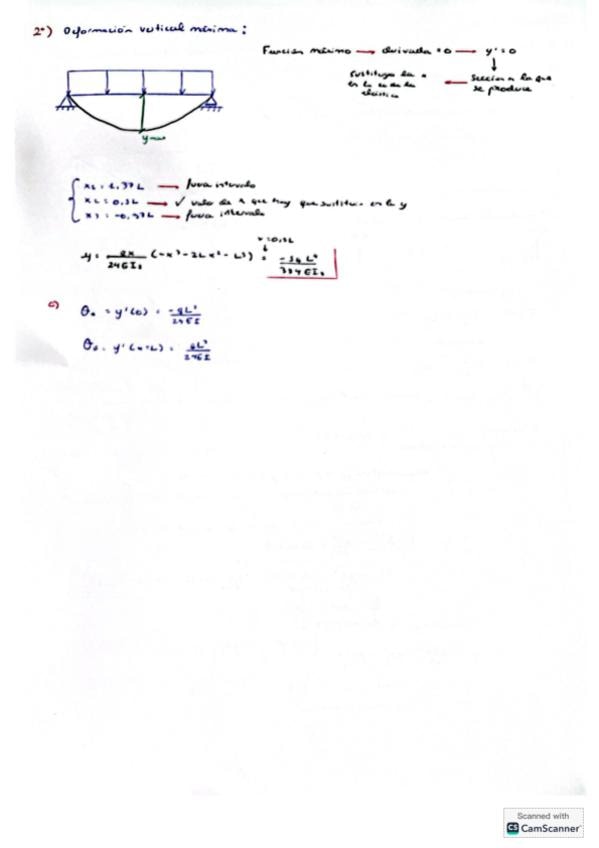 2º) Deformación vertical máxima:
Función máximo → derivada = 0 → y' = 0
Sustituyo la x ← Sección a la que
en la ec de la se produce
elástica
y max
x1 = 1,37L → fuera intervalo
x2 = 0,5L → ✓ valor de x que hay que sustituir en la y
x3 = -0,37L → fuera intervalo
x=0,5L
y = qx/24EIz (-x³-2Lx²-L³) = -5qL⁴/384EIz
c) θA = y'(0) = -qL³/24EI
θB = y'(x=L) = qL³/24EI
Scanned with
CS CamScanner